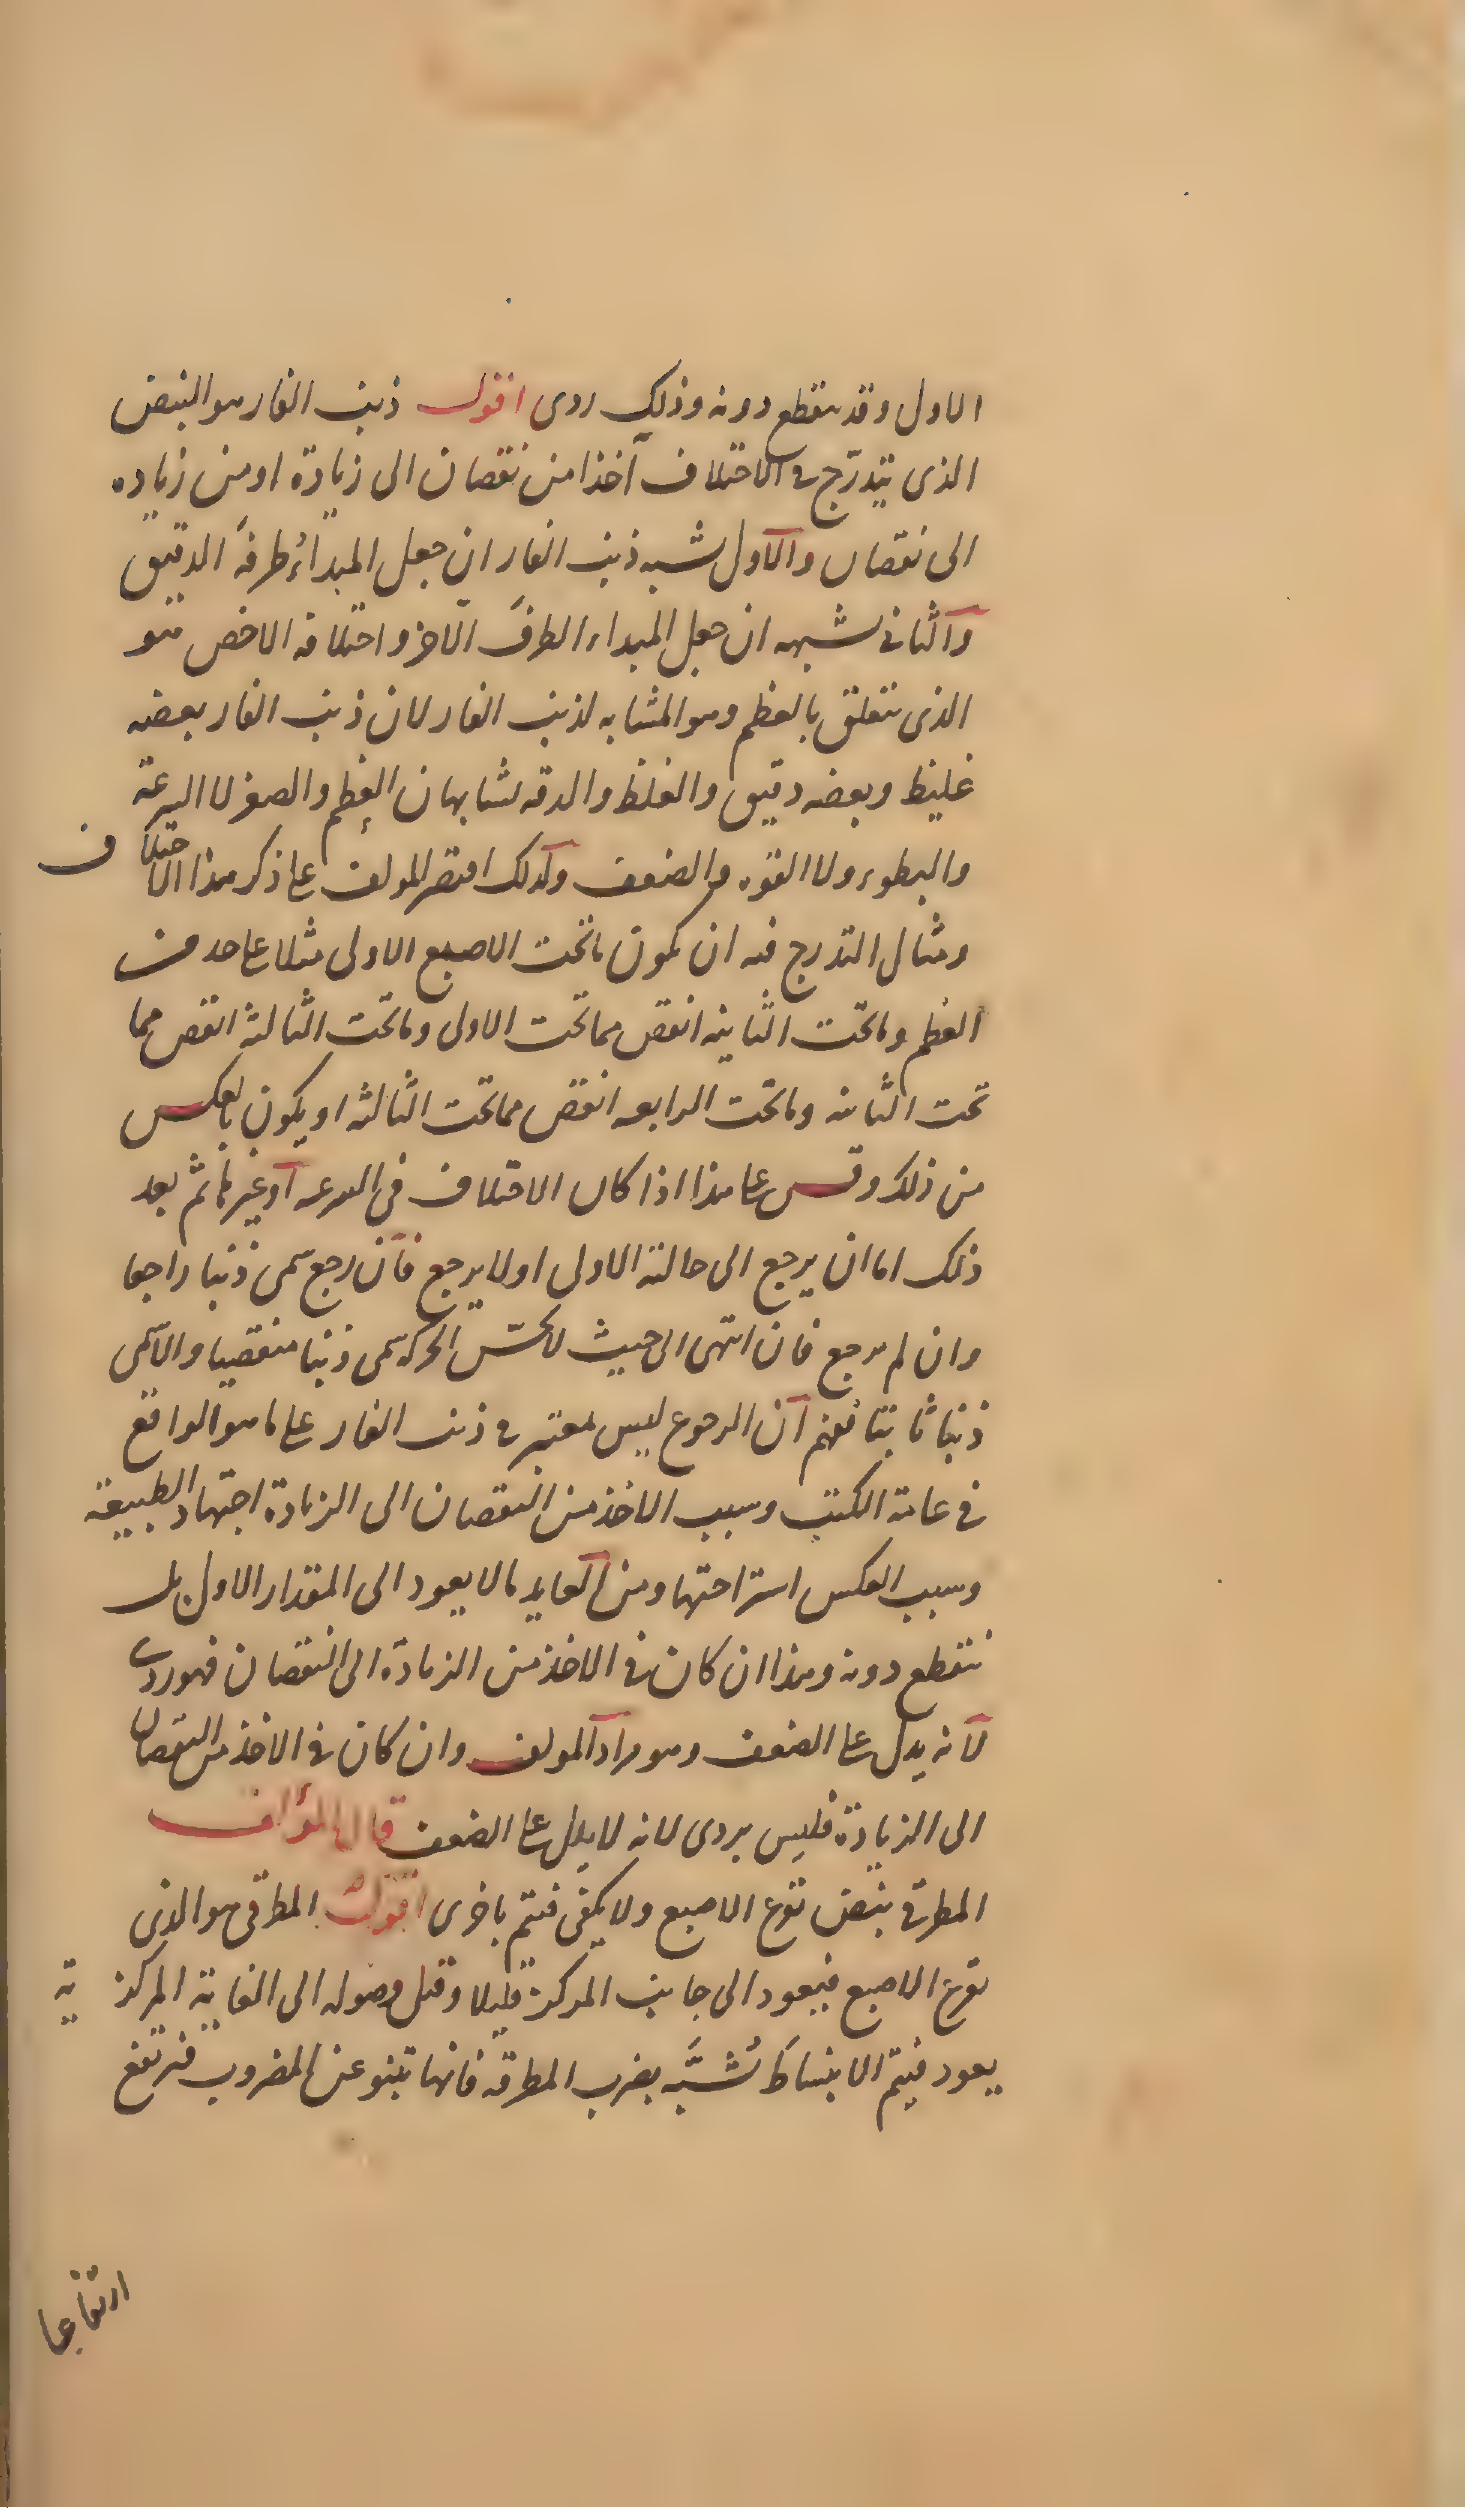 الاول وقد ينقطع دونه وذلك ردى اقول ذنب الفار هو النبض
الذى يتدرّج فى الاختلاف آخذا من نقصان الى زيادة او من زياده
الى نقصان والاول شبه ذنب الفار ان جعل المبداء طرفه الدقيق
والثانى شبهه ان جعل المبداء الطرف الآخر واختلافه الاخص هو
الذى يتعلق بالعظم وهو المشابه لذنب الفار لان ذنب الفار بعضه
غليظ وبعضه دقيق والغلظ والدقه يشابهان العظم والصغر لا السرعة
والبطوء ولا القوه والضعف ولذلك اقتصر المولف على ذكر هذا الاختلاف
ومثال التدرج فيه ان يكون ماتحت الاصبع الاولى مثلا على حد من
العظم وماتحت الثانيه انقص مماتحت الاولى وماتحت الثالثة انقص مما
تحت الثانيه وماتحت الرابعه انقص مماتحت الثالثه او يكون بالعكس
من ذلك وقس على هذا اذا كان الاختلاف فى السرعه او غيرها ثم بعد
ذلك اما ان يرجع الى حالته الاولى او لا يرجع فان رجع سمى ذنبا راجعا
وان لم يرجع فان انتهى الى حيث لا يحسّ الحركه سمى ذنبا منقضيا والا سمى
ذنبا ثابتا فعلم ان الرجوع ليس بمعتبر فى ذنب الفار على ما هو الواقع
فى عامة الكتب وسبب الاخذ من النقصان الى الزيادة اجتهاد الطبيعة
وسبب العكس استراحتها ومن العايد مالا يعود الى المقدار الاول بل
ينقطع دونه وهذا ان كان فى الاخذ من الزيادة الى النقصان فهو ردى
لانه يدل على الضعف وهو مراد المولف وان كان فى الاخذ من النقصان
الى الزيادة فليس بردى لانه لا يدل على الضعف قال المؤلف
المطرقى نبض يقرع الاصبع ولا يكفى فيتم باخرى اقول المطرقى هو الذى
يقرع الاصبع فيعود الى جانب المركز قليلا وقبل وصوله الى الغاية المركزية
يعود فيتم الانبساط شُبّه بضرب المطرقه فانها تنبو عن المضروب فترتفع
ارتفاعا